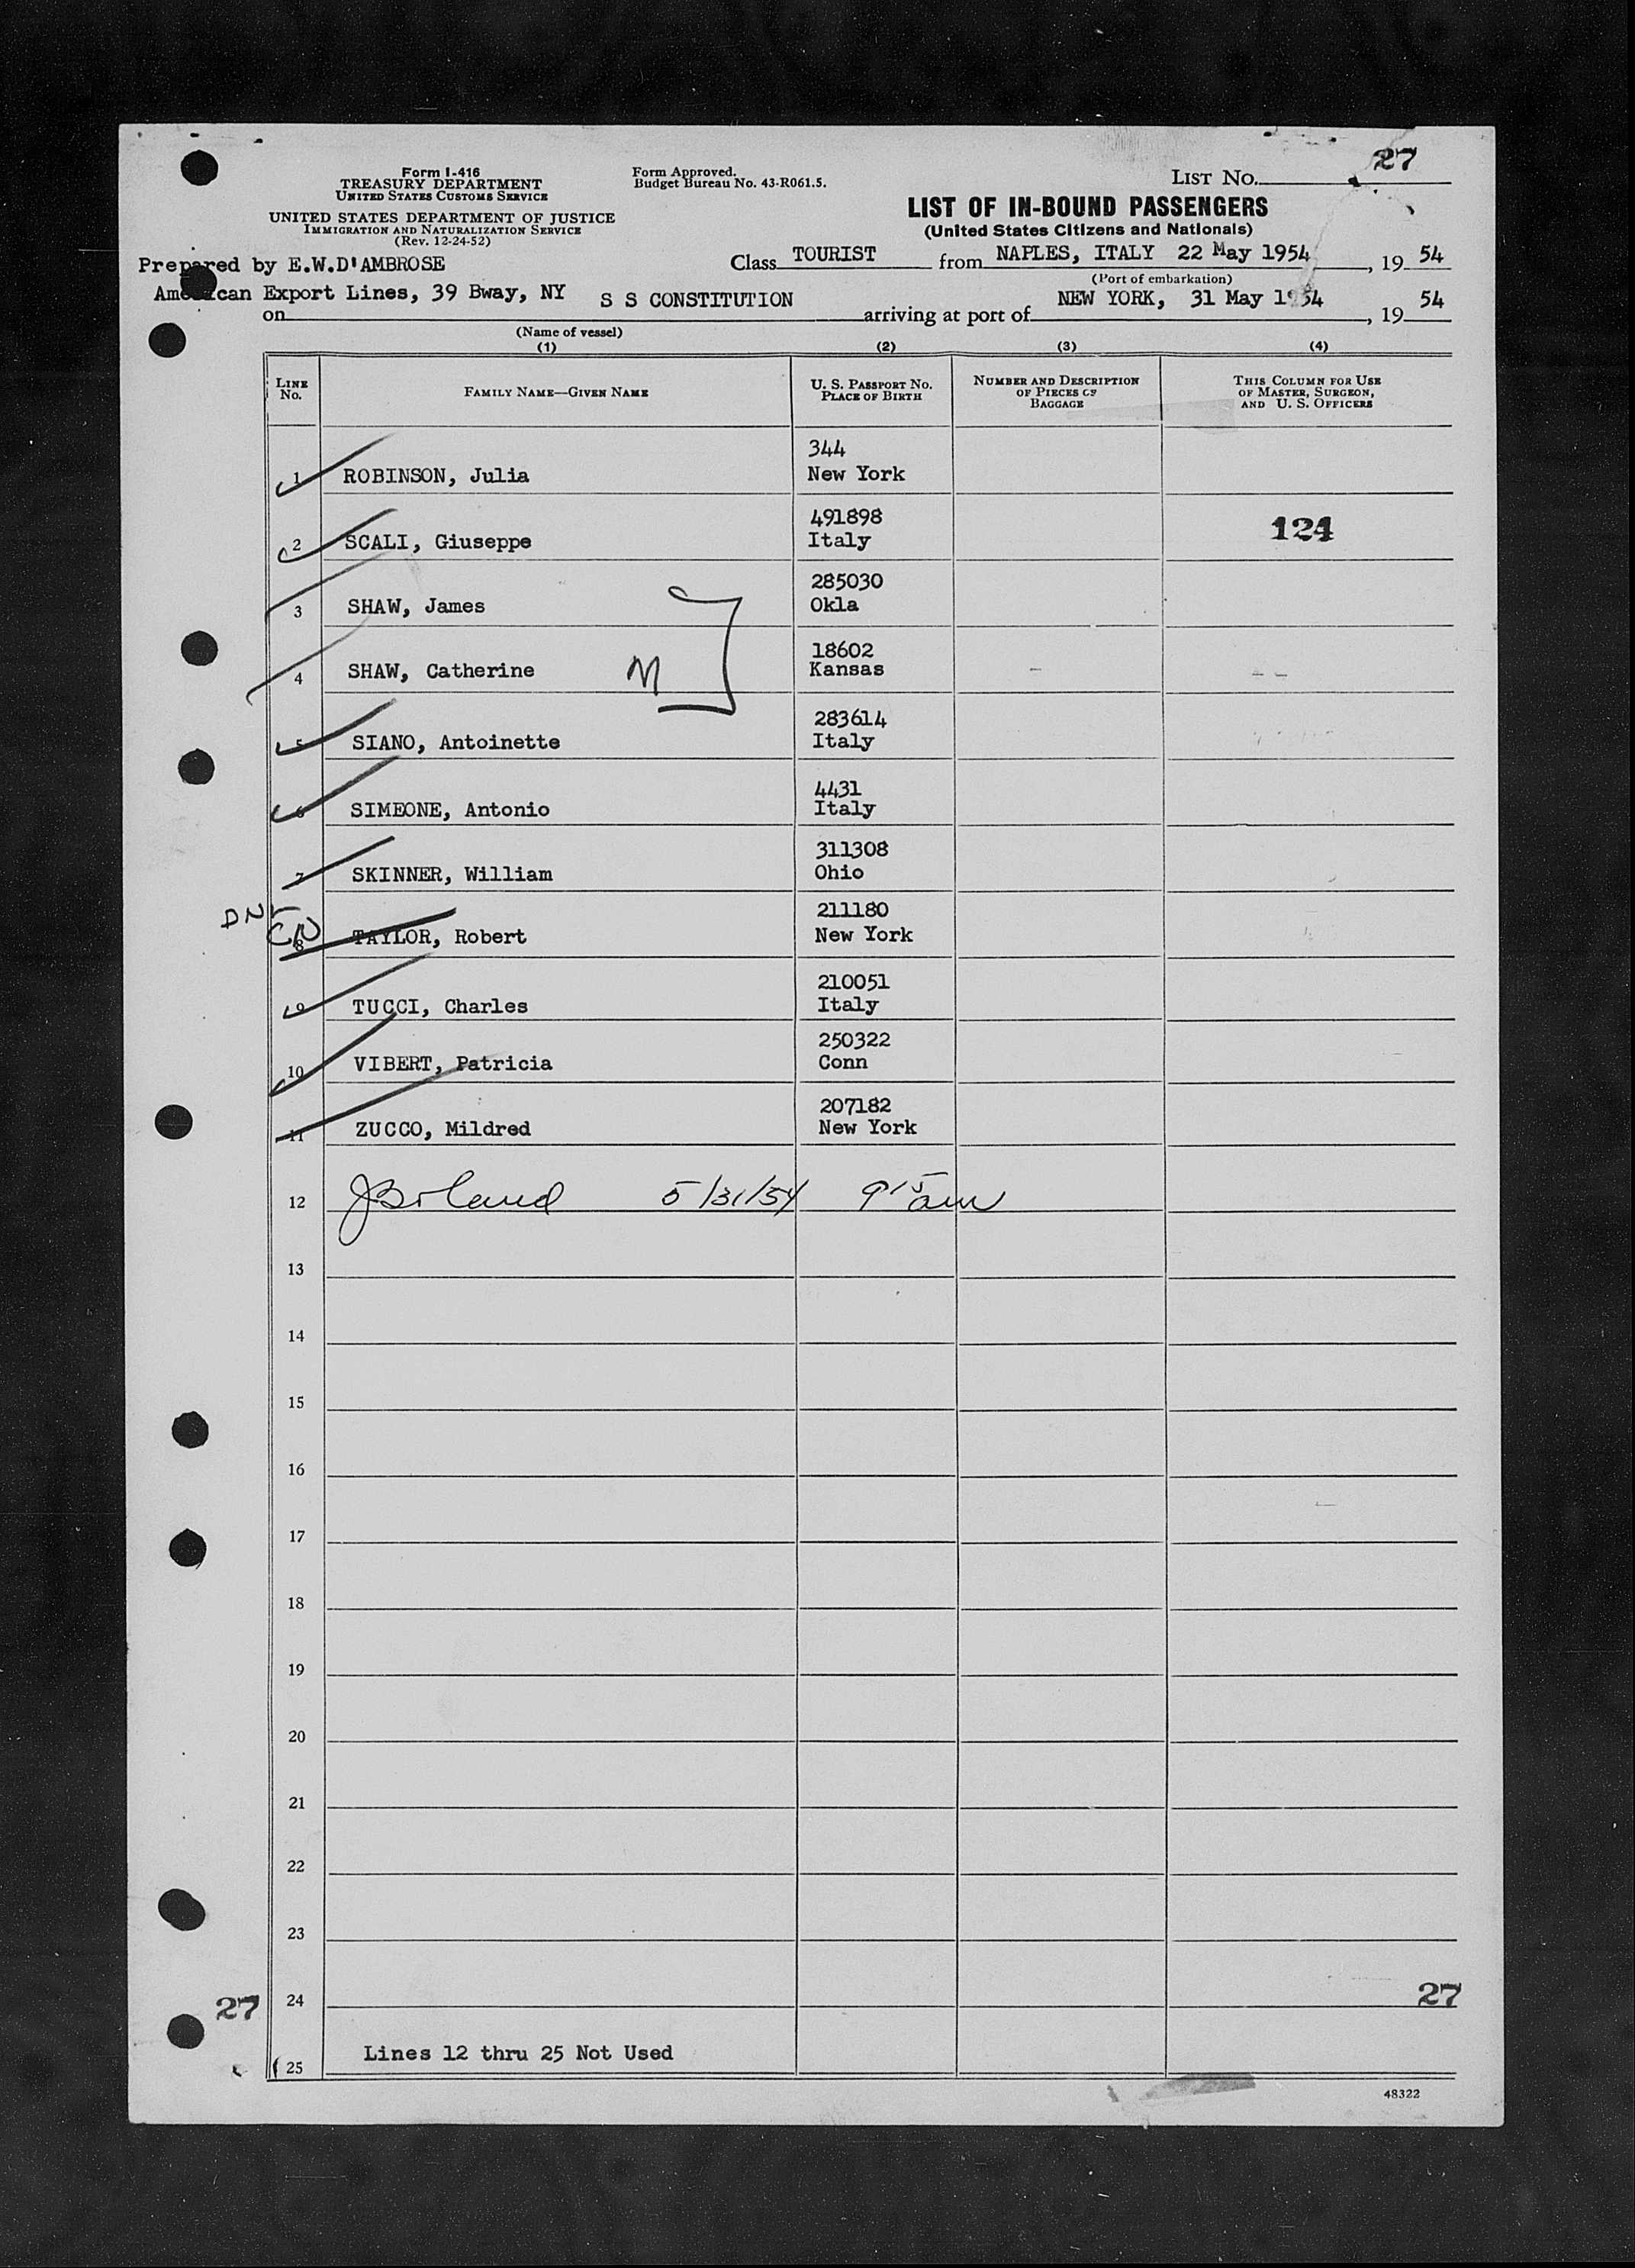 27
Form I-416
TREASURY DEPARTMENT
UNITED STATES CUSTOMS SERVICE
UNITED STATES DEPARTMENT OF JUSTICE
IMMIGRATION AND NATURALIZATION SERVICE
(Rev. 12-24-52)
Form Approved.
Budget Bureau No. 43-R061.5.
LIST NO.
LIST OF IN-BOUND PASSENGERS
(United States Citizens and Nationals)
Prepared by E.W.D'AMBROSE
Class TOURIST from NAPLES, ITALY 22 May 1954, 19 54
(Port of embarkation)
American Export Lines, 39 Bway, NY
on S S CONSTITUTION arriving at port of NEW YORK, 31 May 1954, 19 54
(Name of vessel)
(1) (2) (3) (4)
LINE No. FAMILY NAME—GIVEN NAME U. S. PASSPORT NO. PLACE OF BIRTH NUMBER AND DESCRIPTION OF PIECES OF BAGGAGE THIS COLUMN FOR USE OF MASTER, SURGEON, AND U. S. OFFICERS
344
1 ROBINSON, Julia New York
491898 124
2 SCALI, Giuseppe Italy
285030
3 SHAW, James Okla
18602
4 SHAW, Catherine M Kansas
283614
5 SIANO, Antoinette Italy
4431
6 SIMEONE, Antonio Italy
311308
7 SKINNER, William Ohio
211180
8 TAYLOR, Robert New York
210051
9 TUCCI, Charles Italy
250322
10 VIBERT, Patricia Conn
207182
11 ZUCCO, Mildred New York
12 JBoland 5/31/54 9 15 am
13
14
15
16
17
18
19
20
21
22
23
27 24 27
25 Lines 12 thru 25 Not Used
48322